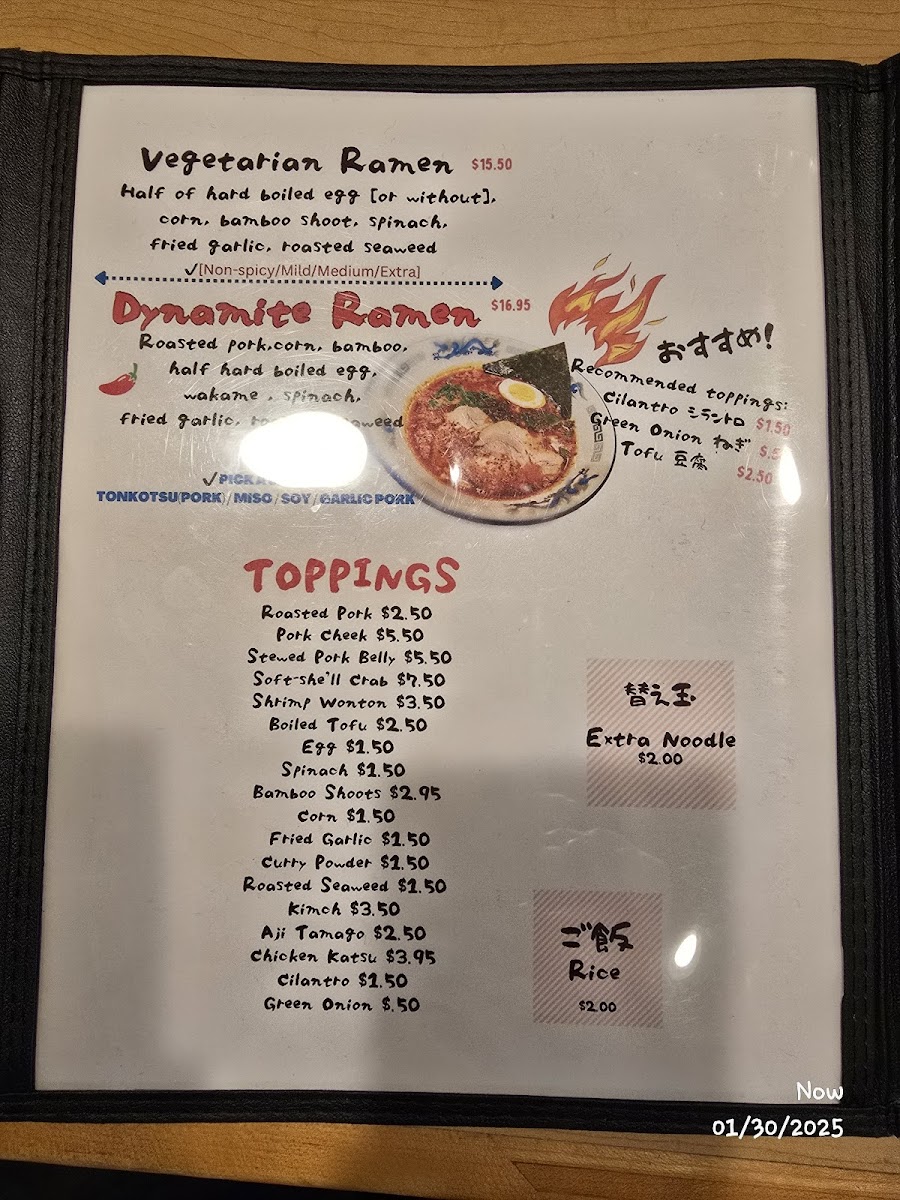 Vegetarian Ramen $15.50
Half of hard boiled egg [or without],
corn, bamboo shoot, spinach,
fried garlic, roasted seaweed
✓[Non-spicy/Mild/Medium/Extra]
Dynamite Ramen $16.95
Roasted pork,corn, bamboo,
half hard boiled egg,
wakame , spinach,
fried garlic,
✓PICK
TONKOTSU(PORK) / MISO / SOY / GARLIC PORK
おすすめ!
Recommended toppings:
Cilantro シラントロ $1.50
Green Onion ねぎ
Tofu 豆腐 $2.50
TOPPINGS
Roasted Pork $2.50
Pork Cheek $5.50
Stewed Pork Belly $5.50
Soft-she'll Crab $7.50
Shrimp Wonton $3.50
Boiled Tofu $2.50
Egg $1.50
Spinach $1.50
Bamboo Shoots $2.95
Corn $1.50
Fried Garlic $1.50
Curry Powder $1.50
Roasted Seaweed $1.50
Kimch $3.50
Aji Tamago $2.50
Chicken Katsu $3.95
Cilantro $1.50
Green Onion $.50
替え玉
Extra Noodle
$2.00
ご飯
Rice
$2.00
Now
01/30/2025